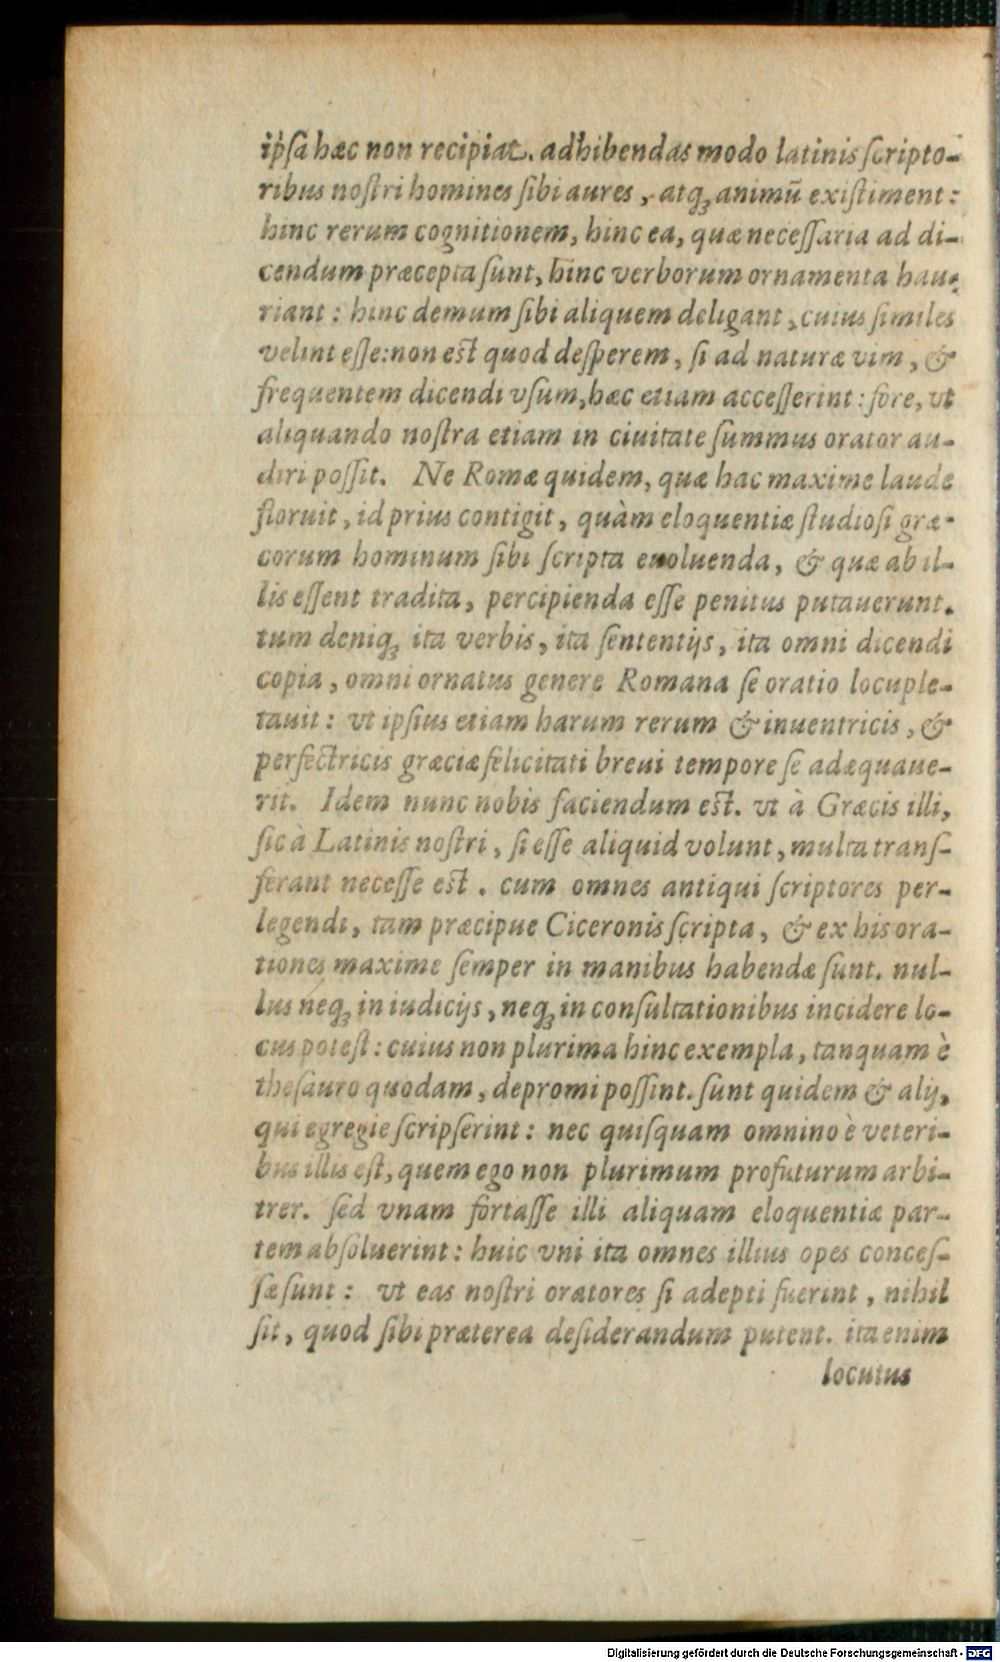 ipſa hæc non recipiat. adhibendas modo latinis ſcripto-
ribus noſtri homines ſibi aures, atqꝫ animū exiſtiment:
hinc rerum cognitionem, hinc ea, quæ neceſſaria ad di-
cendum præcepta ſunt, hinc verborum ornamenta hau-
riant: hinc demum ſibi aliquem deligant, cuius ſimiles
velint eſſe: non eſt quod deſperem, ſi ad naturæ vim, &
frequentem dicendi vſum, hæc etiam acceſſerint: fore, vt
aliquando noſtra etiam in ciuitate ſummus orator au-
diri poſſit. Ne Romæ quidem, quæ hac maxime laude
floruit, id prius contigit, quàm eloquentiæ ſtudioſi græ-
corum hominum ſibi ſcripta euoluenda, & quæ ab il-
lis eſſent tradita, percipienda eſſe penitus putauerunt.
tum deniqꝫ ita verbis, ita ſententijs, ita omni dicendi
copia, omni ornatus genere Romana ſe oratio locuple-
tauit: vt ipſius etiam harum rerum & inuentricis, &
perfectricis græciæ felicitati breui tempore ſe adæquaue-
rit. Idem nunc nobis faciendum eſt. vt à Græcis illi,
ſic à Latinis noſtri, ſi eſſe aliquid volunt, multa tranſ-
ferant neceſſe eſt. cum omnes antiqui ſcriptores per-
legendi, tam præcipue Ciceronis ſcripta, & ex his ora-
tiones maxime ſemper in manibus habendæ ſunt. nul-
lus neqꝫ in iudicijs, neqꝫ in conſultationibus incidere lo-
cus poteſt: cuius non plurima hinc exempla, tanquam è
theſauro quodam, depromi poſſint. ſunt quidem & alij,
qui egregie ſcripſerint: nec quiſquam omnino è veteri-
bus illis eſt, quem ego non plurimum profuturum arbi-
trer. ſed vnam fortaſſe illi aliquam eloquentiæ par-
tem abſoluerint: huic vni ita omnes illius opes conceſ-
ſæ ſunt: vt eas noſtri oratores ſi adepti fuerint, nihil
ſit, quod ſibi præterea deſiderandum putent. ita enim
locutus
Digitalisierung gefördert durch die Deutsche Forschungsgemeinschaft - DFG